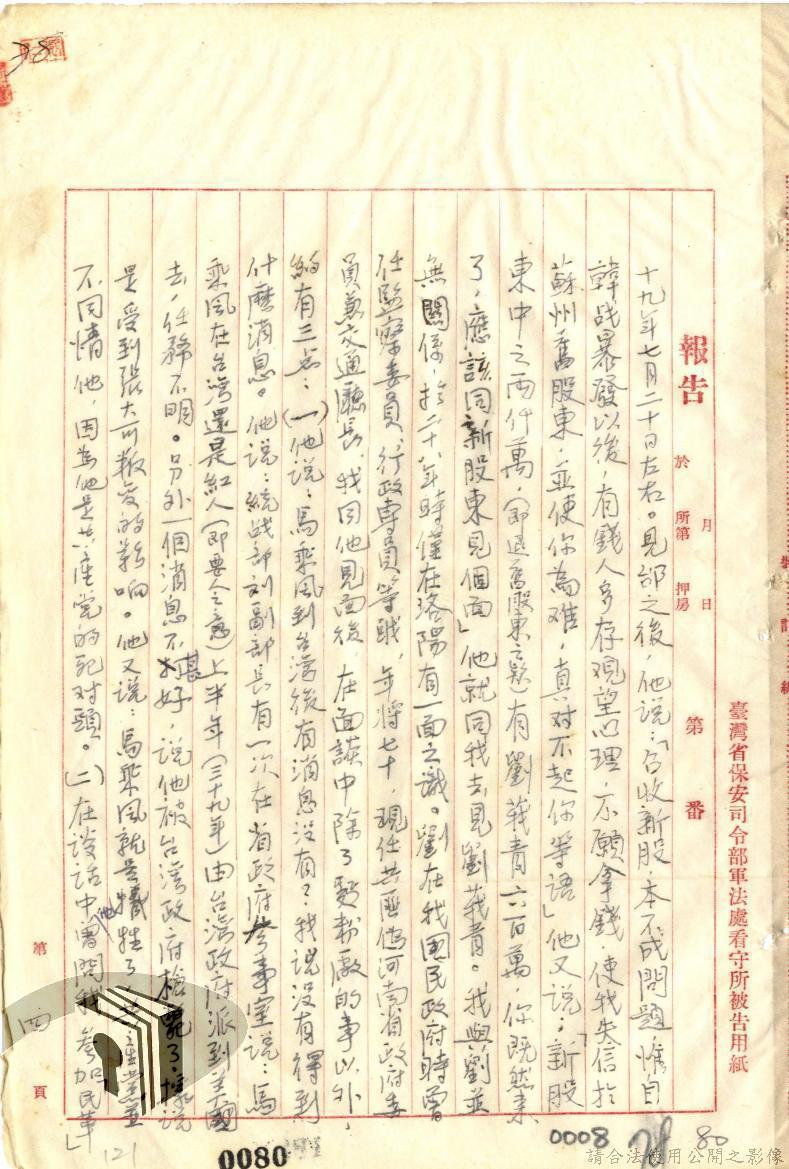 臺灣省保安司令部軍法處看守所被告用紙
報告
於 所第 押房
月 日
第 番
十九年七月二十日左右。見部之後，他說：「召收新股，本不成問題，惟自
韓战暴發以後，有錢人多存观望心理，不願拿錢，使我失信於
蘇州舊股東，並使你為难，真对不起你等語」他又說，「新股
東中之两仟萬，（即退舊股東之款）有劉莪青六百萬，你既然来
了，應該同新股東見個面」他就同我去見劉莪青。我與劉並
無關係，於二十八年時僅在洛陽有一面之識。劉在我國民政府時曾
任監察委員，行政專員等職，年將七十，現任共匪偽河南省政府委
員兼交通廳長，我同他見面後，在面談中除了麵粉廠的事以外，
約有三点：（一）他说：馬乘风到台湾後有消息没有？我说没有得到
什麽消息。他說：統战部刘副部長有一次在省政府参事室說：馬
乘风在台湾還是紅人（即要人之意）上半年（三十九年）由台湾政府派到美國
去，任務不明。另外一個消息不堪好，说他被台湾政府槍斃了，據说
是受到張大可叛变的影响。他又说：馬乘风就是犧牲了，共產黨並
不同情他，因為他是共產党的死对頭。（二）在談話中他曾問我參加民革
第 四 頁
121
0080
0008
80
請合法使用公開之影像